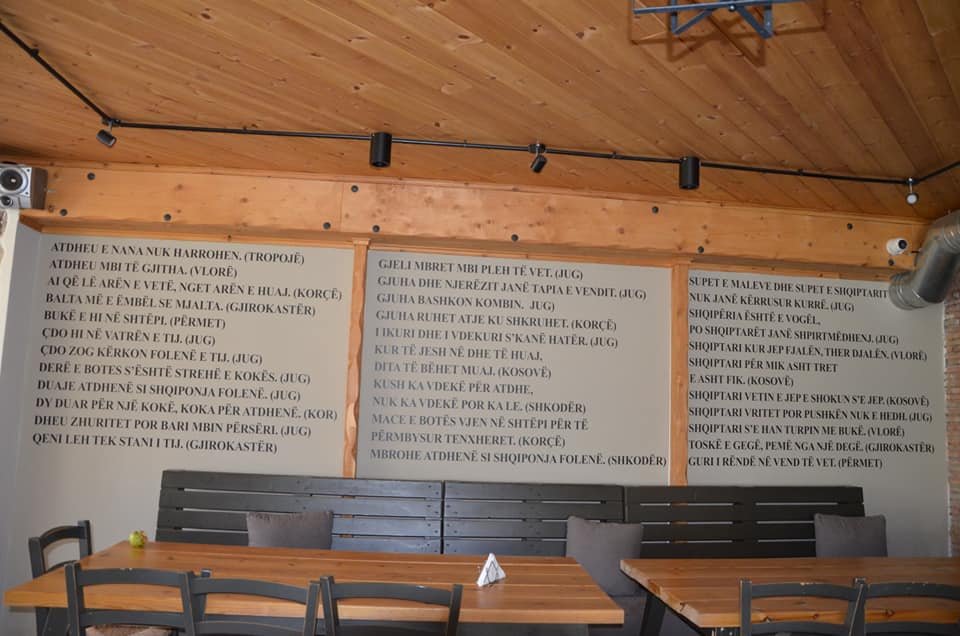 ATDHEU E NANA NUK HARROHEN. (TROPOJË)
ATDHEU MBI TË GJITHA. (VLORË)
AI QË LË ARËN E VETË, NGET ARËN E HUAJ. (KORÇË)
BALTA MË E ËMBËL SE MJALTA. (GJIROKASTËR)
BUKË E HI NË SHTËPI. (PËRMET)
ÇDO HI NË VATRËN E TIJ. (JUG)
ÇDO ZOG KËRKON FOLENË E TIJ. (JUG)
DERË E BOTES S'ËSHTË STREHË E KOKËS. (JUG)
DUAJE ATDHENË SI SHQIPONJA FOLENË. (JUG)
DY DUAR PËR NJË KOKË, KOKA PËR ATDHENË. (KOR)
DHEU ZHURITET POR BARI MBIN PËRSËRI. (JUG)
QENI LEH TEK STANI I TIJ. (GJIROKASTËR)
GJELI MBRET MBI PLEH TË VET. (JUG)
GJUHA DHE NJERËZIT JANË TAPIA E VENDIT. (JUG)
GJUHA BASHKON KOMBIN. JUG)
GJUHA RUHET ATJE KU SHKRUHET. (KORÇË)
I IKURI DHE I VDEKURI S'KANË HATËR. (JUG)
KUR TË JESH NË DHE TË HUAJ,
DITA TË BËHET MUAJ. (KOSOVË)
KUSH KA VDEKË PËR ATDHE,
NUK KA VDEKË POR KA LE. (SHKODËR)
MACE E BOTËS VJEN NË SHTËPI PËR TË
PËRMBYSUR TENXHERET. (KORÇË)
MBROHE ATDHENË SI SHQIPONJA FOLENË. (SHKODËR)
SUPET E MALEVE DHE SUPET E SHQIPTARIT
NUK JANË KËRRUSUR KURRË. (JUG)
SHQIPËRIA ËSHTË E VOGËL,
PO SHQIPTARËT JANË SHPIRTMËDHENJ. (JUG)
SHQIPTARI KUR JEP FJALËN, THER DJALËN. (VLORË)
SHQIPTARI PËR MIK ASHT TRET
E ASHT FIK. (KOSOVË)
SHQIPTARI VETIN E JEP E SHOKUN S'E JEP. (KOSOVË)
SHQIPTARI VRITET POR PUSHKËN NUK E HEDH. (JUG)
SHQIPTARI S'E HAN TURPIN ME BUKË. (VLORË)
TOSKË E GEGË, PEMË NGA NJË DEGË. (GJIROKASTËR)
GURI I RËNDË NË VEND TË VET. (PËRMET)